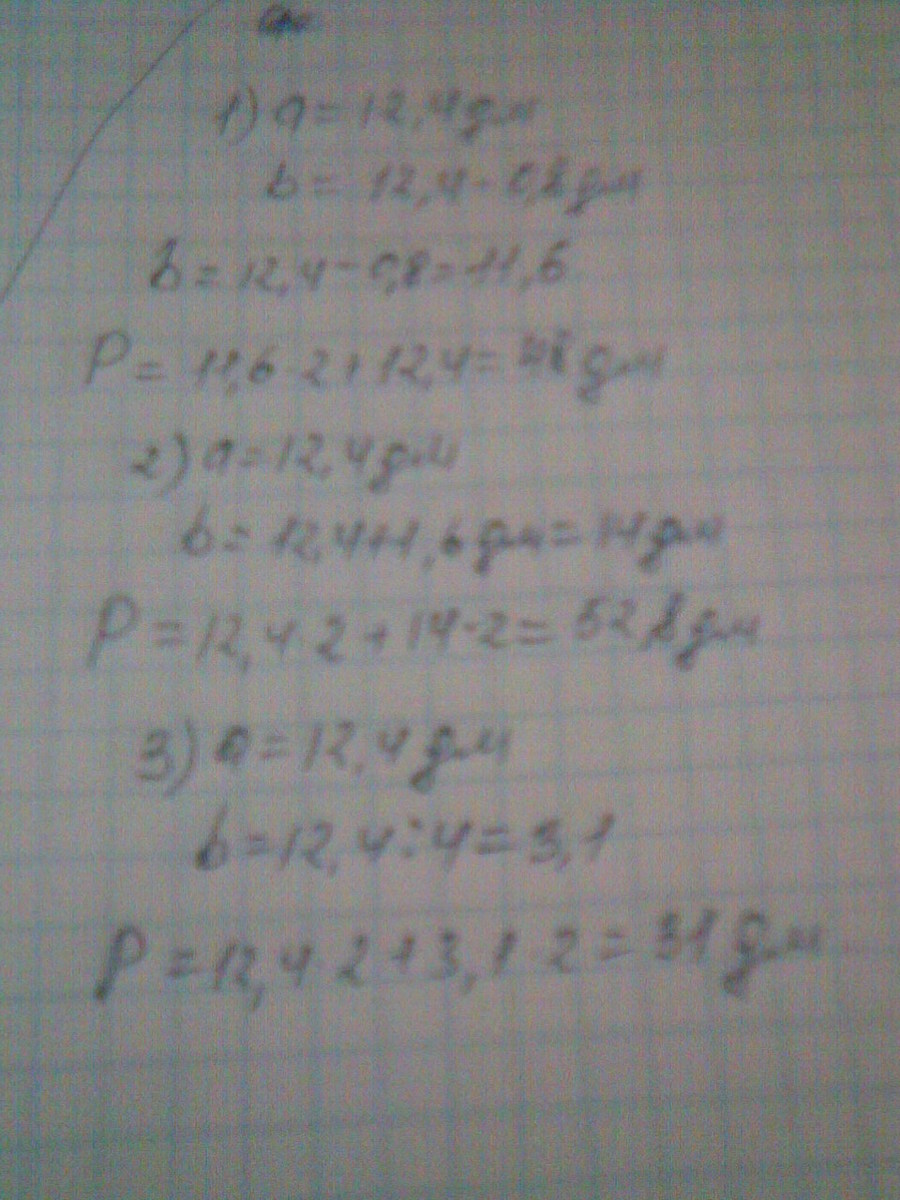 1) a = 12,4 дм
b = 12,4 - 0,8 дм
b = 12,4 - 0,8 = 11,6
P = 11,6 · 2 + 12,4 = 48 дм
2) a = 12,4 дм
b = 12,4 + 1,6 дм = 14 дм
P = 12,4 · 2 + 14 · 2 = 52,8 дм
3) a = 12,4 дм
b = 12,4 : 4 = 3,1
P = 12,4 · 2 + 3,1 · 2 = 31 дм